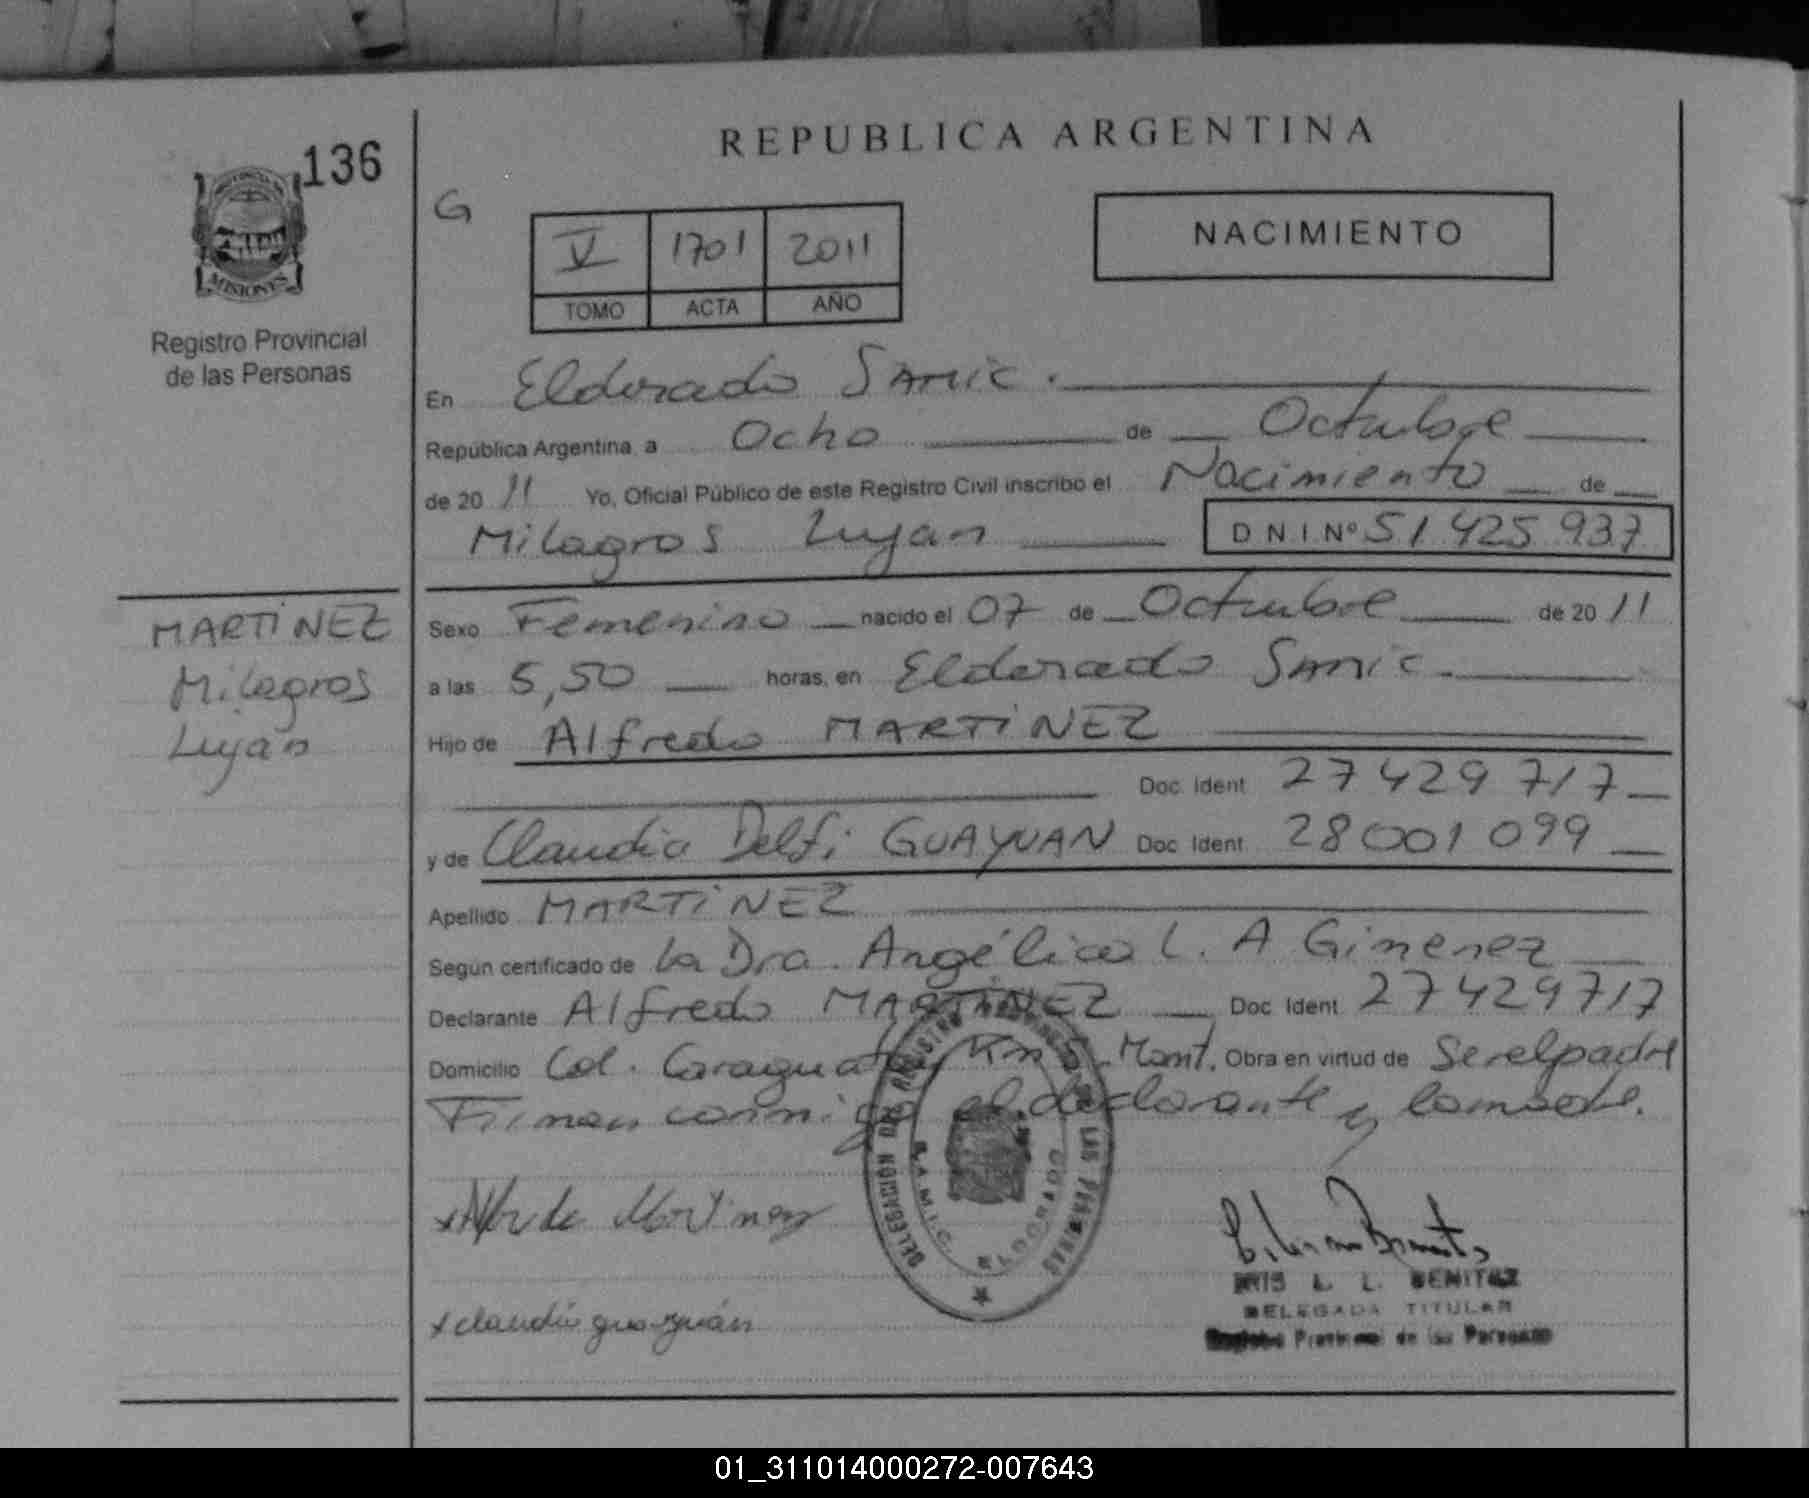 136
MISIONES
Registro Provincial
de las Personas
MARTINEZ
Milagros
Lujan
REPUBLICA ARGENTINA
G
V 1701 2011
TOMO ACTA AÑO
NACIMIENTO
En Eldorado Samic.
República Argentina, a Ocho de Octubre
de 20 11 Yo, Oficial Público de este Registro Civil inscribo el Nacimiento de
Milagros Lujan D N I Nº 51 425 937
Sexo Femenino nacido el 07 de Octubre de 20 11
a las 5,50 horas, en Eldorado Samic.
Hijo de Alfredo MARTINEZ
Doc. Ident. 27 429 717
y de Claudia Delfi GUAYUAN Doc. Ident. 28 001 099
Apellido MARTINEZ
Según certificado de La Dra. Angélica L. A Gimenez
Declarante Alfredo MARTINEZ Doc. Ident. 27 429 717
Domicilio Col. Caraguatay Km 5 - Mont. Obra en virtud de Ser el padre
Firman conmigo el declarante y la madre.
DELEGACION DE REGISTRO PROVINCIAL DE LAS PERSONAS
S.A.M.I.C. ELDORADO
Martinez
x claudia guayuán
IRIS L. L. BENITEZ
DELEGADA TITULAR
Registro Provincial de las Personas
01_311014000272-007643